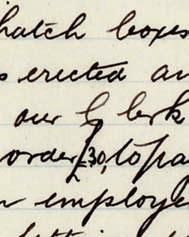 hatch boxes
erected an
our Clerk
order £30, to pa
employe